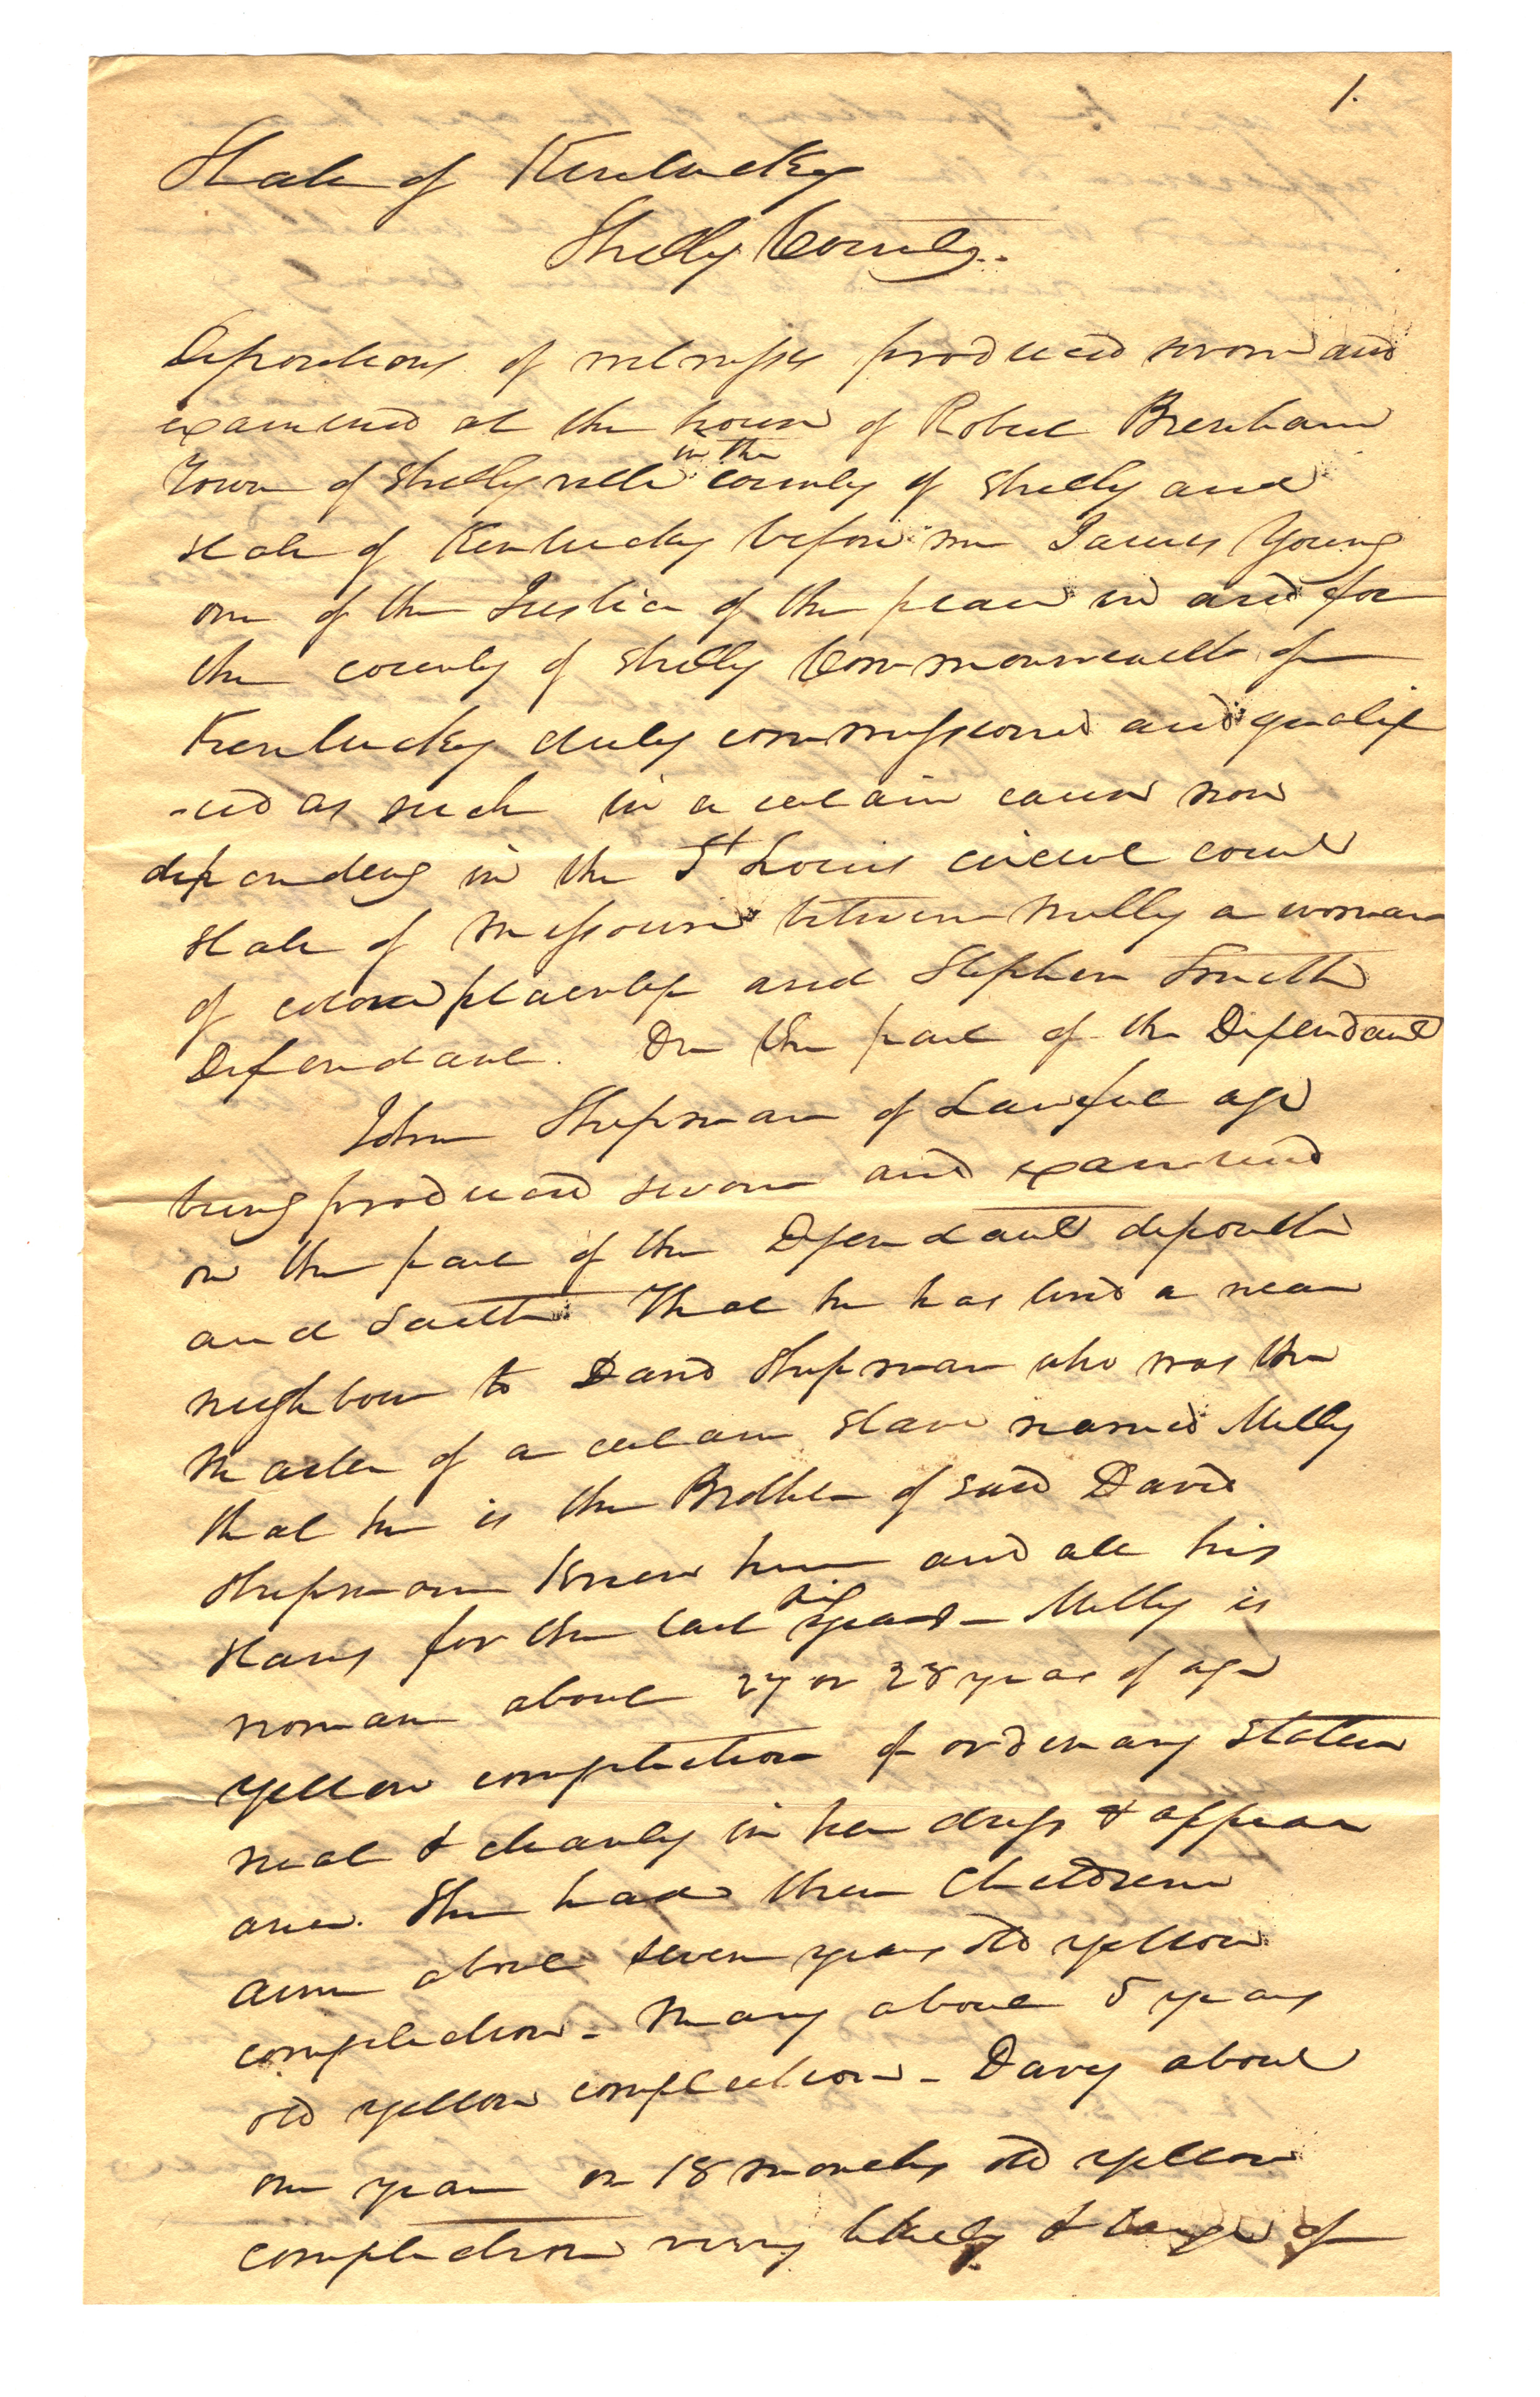 1.
State of Kentucky
Shelby County..
Depositions of witnesses produced sworn and
examined at the house of Robert Brenham
Town of Shelbyville in the county of Shelby and
State of Kentucky before me James Young
one of the Justice of the peace in and for
the county of Shelby Commonwealth of
Kentucky duly commissioned and qualifi
-ed as such in a certain cause now
depending in the St Louis circuit court
State of Missouri between Milly a woman
of color plaintiff and Stephen Smith
Defendant. On the part of the Defendant
John Shipman of Lawful age
being produced sworn and examined
on the part of the Defendant deposeth
and Saith That he has lived a near
neighbour to David Shipman who was the
Master of a certain Slave named Milly
that he is the Brother of said David
Shipman Knew him and all his
Slaves for the last six years - Milly is
woman about 27 or 28 years of age
yellow complection of ordinary stature
neat & cleanly in her dress & appear
ance. She had three Children
ann about seven years old yellow
complection - Mary about 5 years
old yellow complection - Davy about
one year or 18 months old yellow
complection very likely & large of